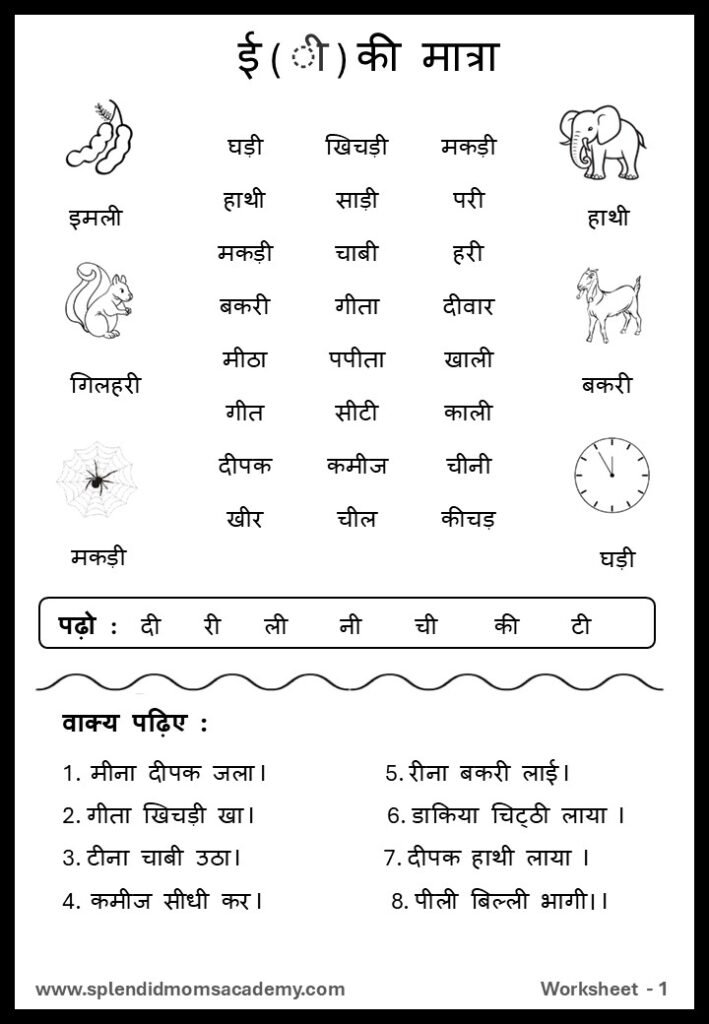 ई ( ी ) की मात्रा
घड़ी खिचड़ी मकड़ी
हाथी साड़ी परी
इमली
हाथी
मकड़ी चाबी हरी
बकरी गीता दीवार
मीठा पपीता खाली
गिलहरी
बकरी
गीत सीटी काली
दीपक कमीज चीनी
खीर चील कीचड़
मकड़ी
घड़ी
पढ़ो : दी री ली नी ची की टी
वाक्य पढ़िए :
1. मीना दीपक जला।
2. गीता खिचड़ी खा।
3. टीना चाबी उठा।
4. कमीज सीधी कर।
5. रीना बकरी लाई।
6. डाकिया चिट्ठी लाया ।
7. दीपक हाथी लाया ।
8. पीली बिल्ली भागी।।
www.splendidmomsacademy.com
Worksheet - 1